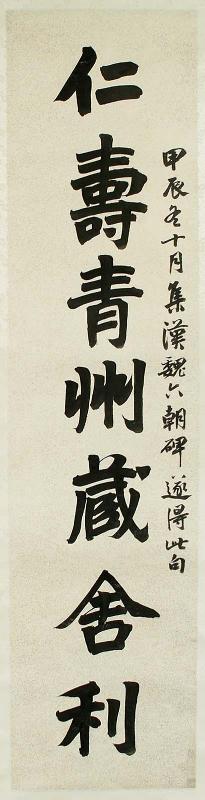 甲辰冬十月集漢魏六朝碑遂得此句
仁壽青州藏舍利